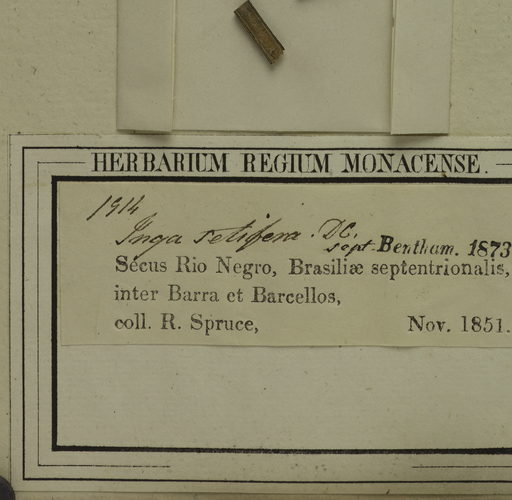 HERBARIUM REGIUM MONACENSE.
1914
Inga setifera. DC.
sept. Bentham. 1873
Secus Rio Negro, Brasiliæ septentrionalis,
inter Barra et Barcellos,
coll. R. Spruce, Nov. 1851.